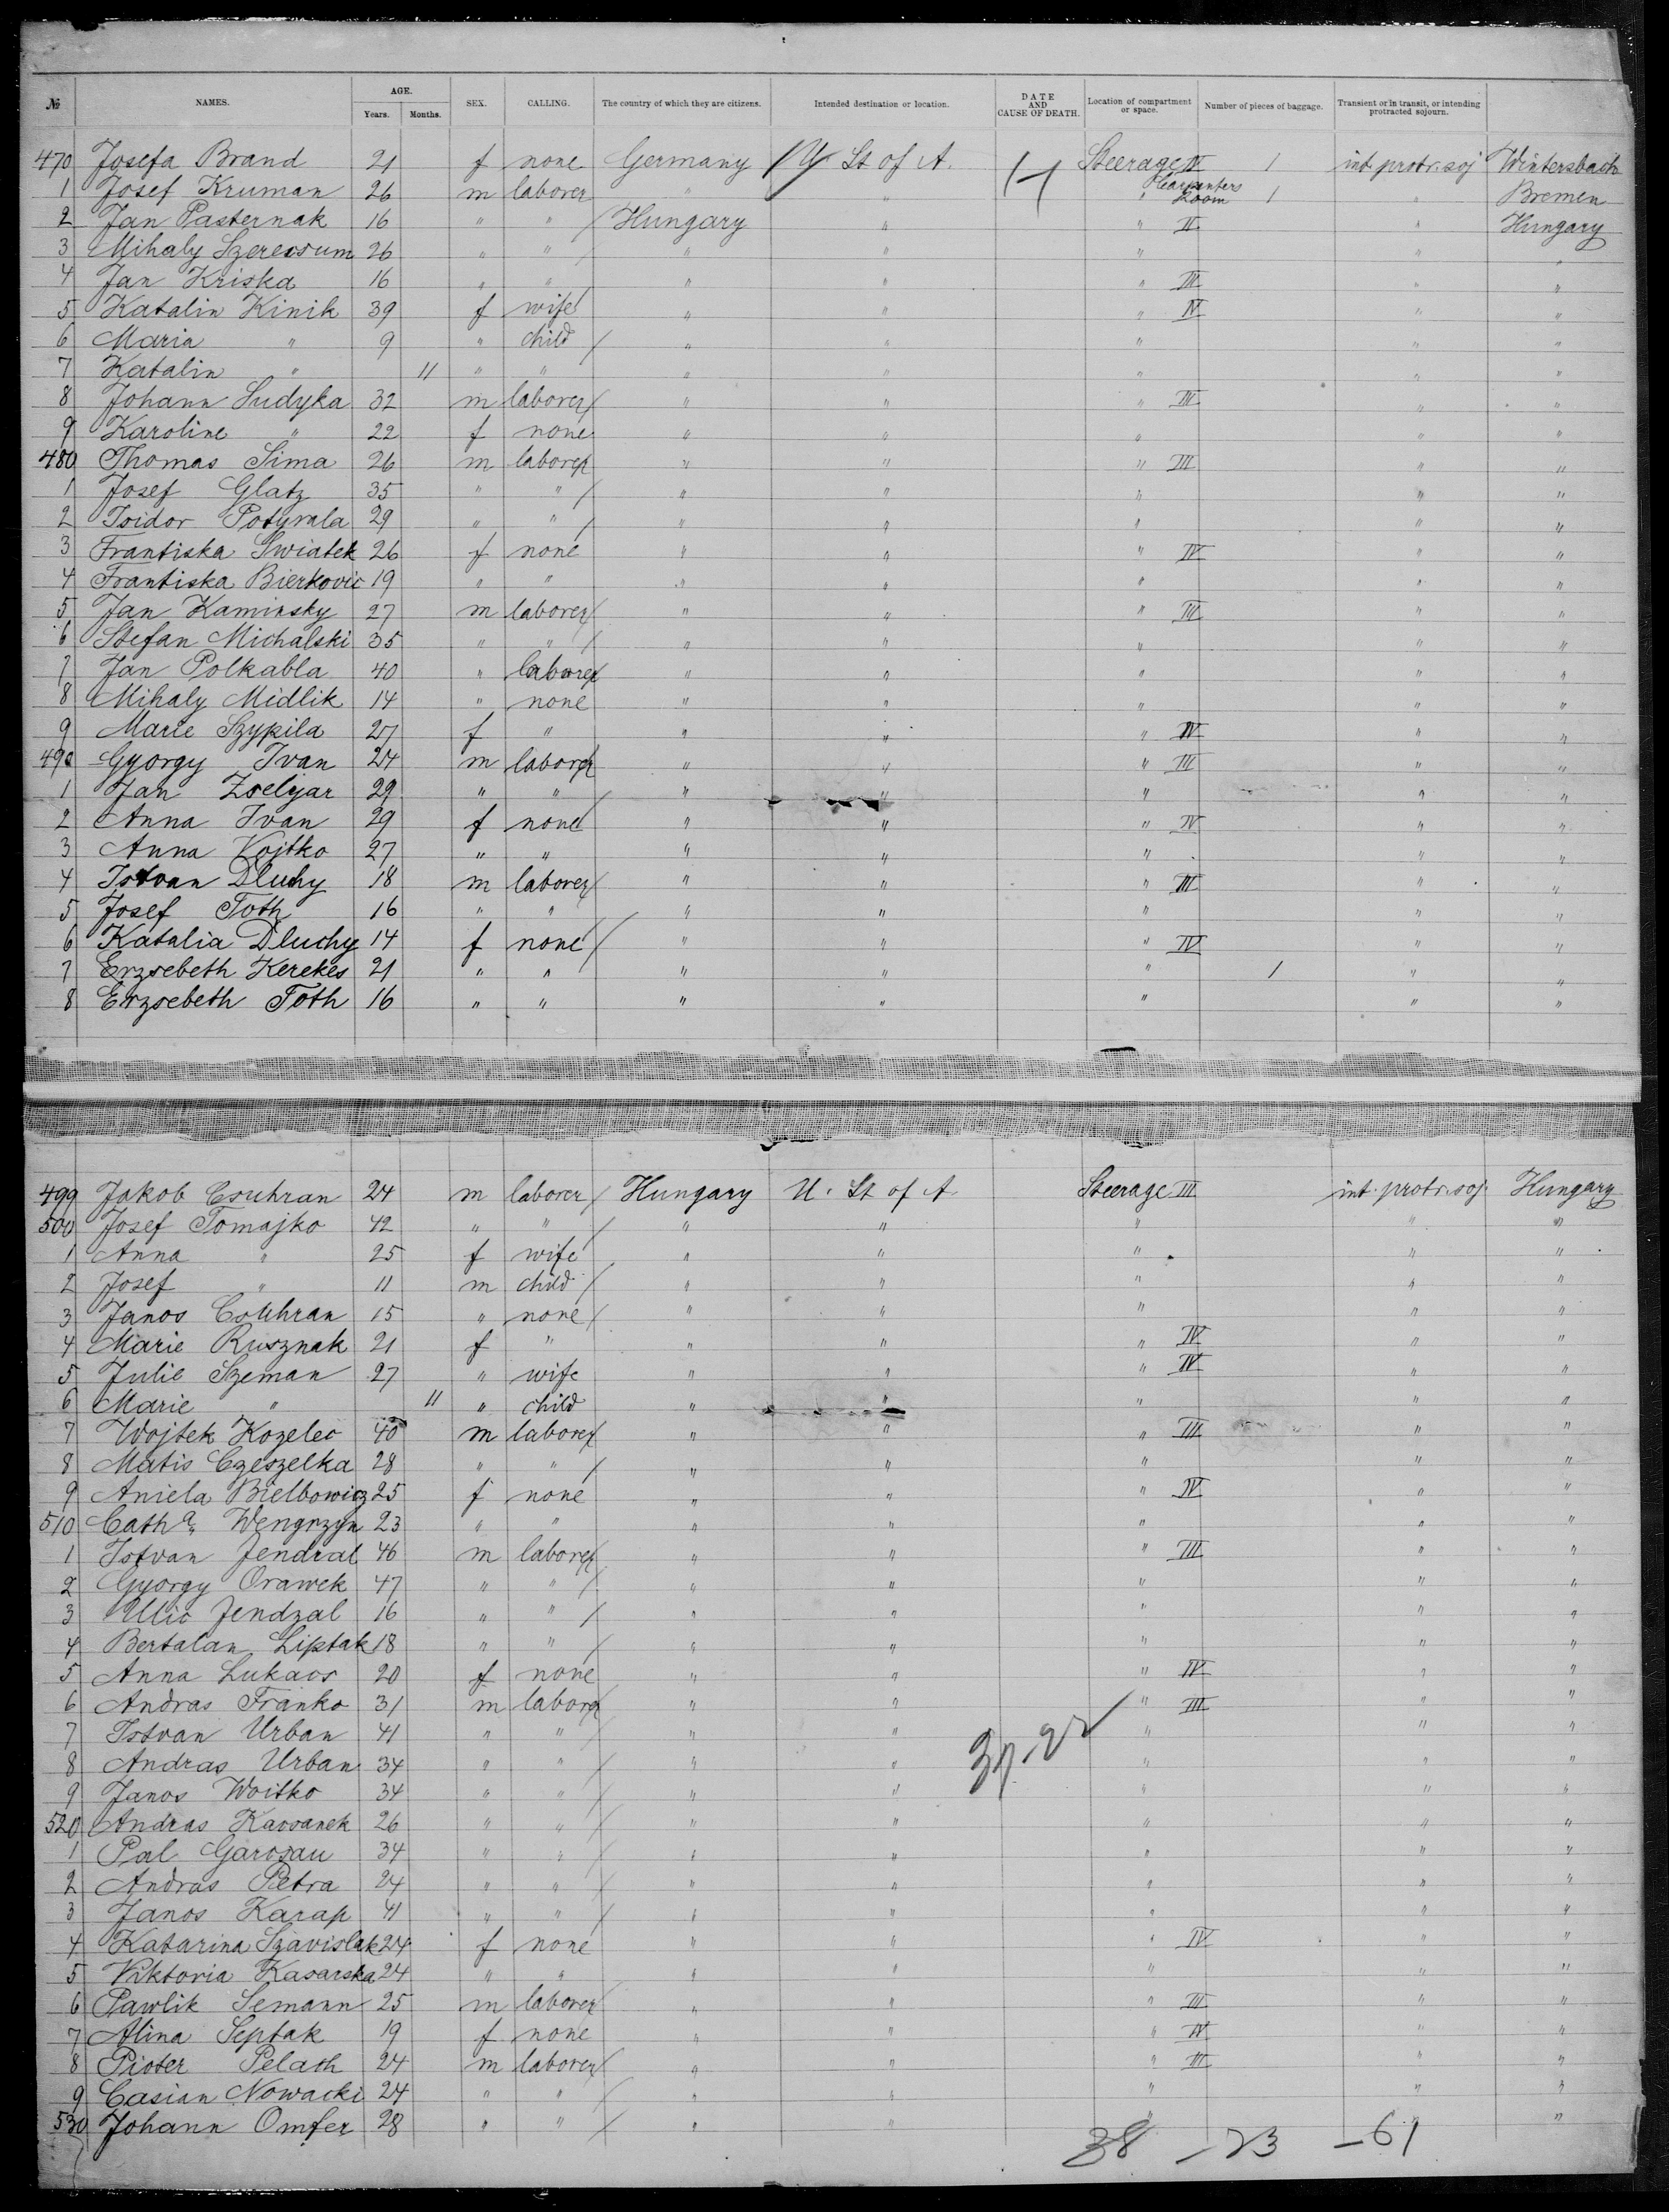 № NAMES. AGE. Years. Months. SEX. CALLING. The country of which they are citizens. Intended destination or location. DATE AND CAUSE OF DEATH. Location of compartment or space. Number of pieces of baggage. Transient or in transit, or intending protracted sojourn.
470 Josefa Brand 21 f none Germany U St of A. Steerage IV 1 int protr. soj Wintersbach
1 Josef Kruman 26 m laborer " " " Carpenters Room 1 " Bremen
2 Jan Pasternak 16 " " Hungary " " II " Hungary
3 Mihaly 26 " " " " " " "
4 Jan Kriska 16 " " " " " III " "
5 Katalin Kinik 39 f wife " " " IV " "
6 Maria " 9 " child " " " " "
7 Katalin " 11 " " " " " " "
8 Johann Sudyka 32 m laborer " " " III " "
9 Karoline " 22 f none " " " " "
480 Thomas Sima 26 m laborer " " " III " "
1 Josef Glatz 35 " " " " " " "
2 Isidor Potyrala 29 " " " " " " "
3 Frantiska Swiatek 26 f none " " " IV " "
4 Frantiska Bierkovic 19 " " " " " " "
5 Jan Kaminsky 27 m laborer " " " III " "
6 Stefan Michalski 35 " " " " " " "
7 Jan Polkabla 40 " laborer " " " " "
8 Mihaly Midlik 14 " none " " " " "
9 Marie Szypila 27 f " " " " IV " "
490 Gyorgy Ivan 24 m laborer " " " III " "
1 Jan Zselyar 29 " " " " " " "
2 Anna Ivan 29 f none " " " IV " "
3 Anna Kojtko 27 " " " " " " "
4 Istvan Dluhy 18 m laborer " " " III " "
5 Josef Toth 16 " " " " " " "
6 Katalia Dluchy 14 f none " " " IV " "
7 Erzsebeth Kerekes 21 " " " " " 1 " "
8 Erzsebeth Toth 16 " " " " " " "
499 Jakob Csuhran 24 m laborer Hungary U. St of A Steerage III int. protr. soj. Hungary
500 Josef Tomajko 42 " " " " " " "
1 Anna " 25 f wife " " " " "
2 Josef " 11 m child " " " " "
3 Janos Csuhran 15 " none " " " " "
4 Marie Rusznak 21 f " " " " IV " "
5 Julie Szeman 27 " wife " " " IV " "
6 Marie " 11 " child " " " "
7 Wojtek Kozelec 40 m laborer " " " III " "
8 Matis Czeszelka 28 " " " " " " "
9 Aniela Bielbowicz 25 f none " " " IV " "
510 Cath a. Wengrzyn 23 " " " " " " "
1 Istvan Jendral 46 m laborer " " " III " "
2 Gyorgy Orawek 47 " " " " " " "
3 Jendzal 16 " " " " " " "
4 Bertalan Liptak 18 " " " " " " "
5 Anna Lukacs 20 f none " " " IV " "
6 Andras Franko 31 m laborer " " " III " "
7 Istvan Urban 41 " " " " " " "
8 Andras Urban 34 " " " " " " "
9 Janos Woitko 34 " " " " " " "
520 Andras Kavsanek 26 " " " " " " "
1 Pal 34 " " " " " " "
2 Andras Petra 24 " " " " " " "
3 Janos Karap 41 " " " " " " "
4 Katarina Szavislak 24 f none " " " IV " "
5 Viktoria Kasarska 24 " " " " " " "
6 Pawlik Semann 25 m laborer " " " III " "
7 Alina Septak 19 f none " " " IV " "
8 Pioter Pelach 24 m laborer " " " III " "
9 Casian Nowacki 24 " " " " " " "
530 Johann Omfer 28 " " " " " " "
38 - 23 - 61